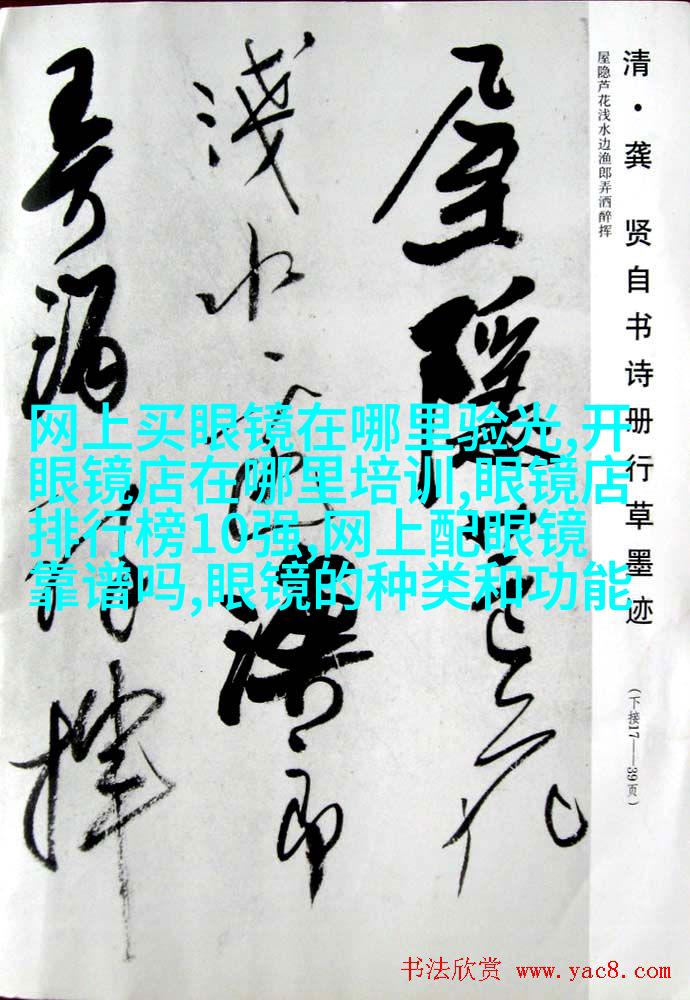 清·龚 贤自书诗册行草墨迹
(下接17——39页)
屋隐芦花浅水边渔郎弄洒醉挥
屋隱芦花
淺水边漁郎
弄酒醉揮
网上买眼镜在哪里验光,开
眼镜店在哪里培训,眼镜店
排行榜10强,网上配眼镜
靠谱吗,眼镜的种类和功能
书法欣赏 www.yac8.com